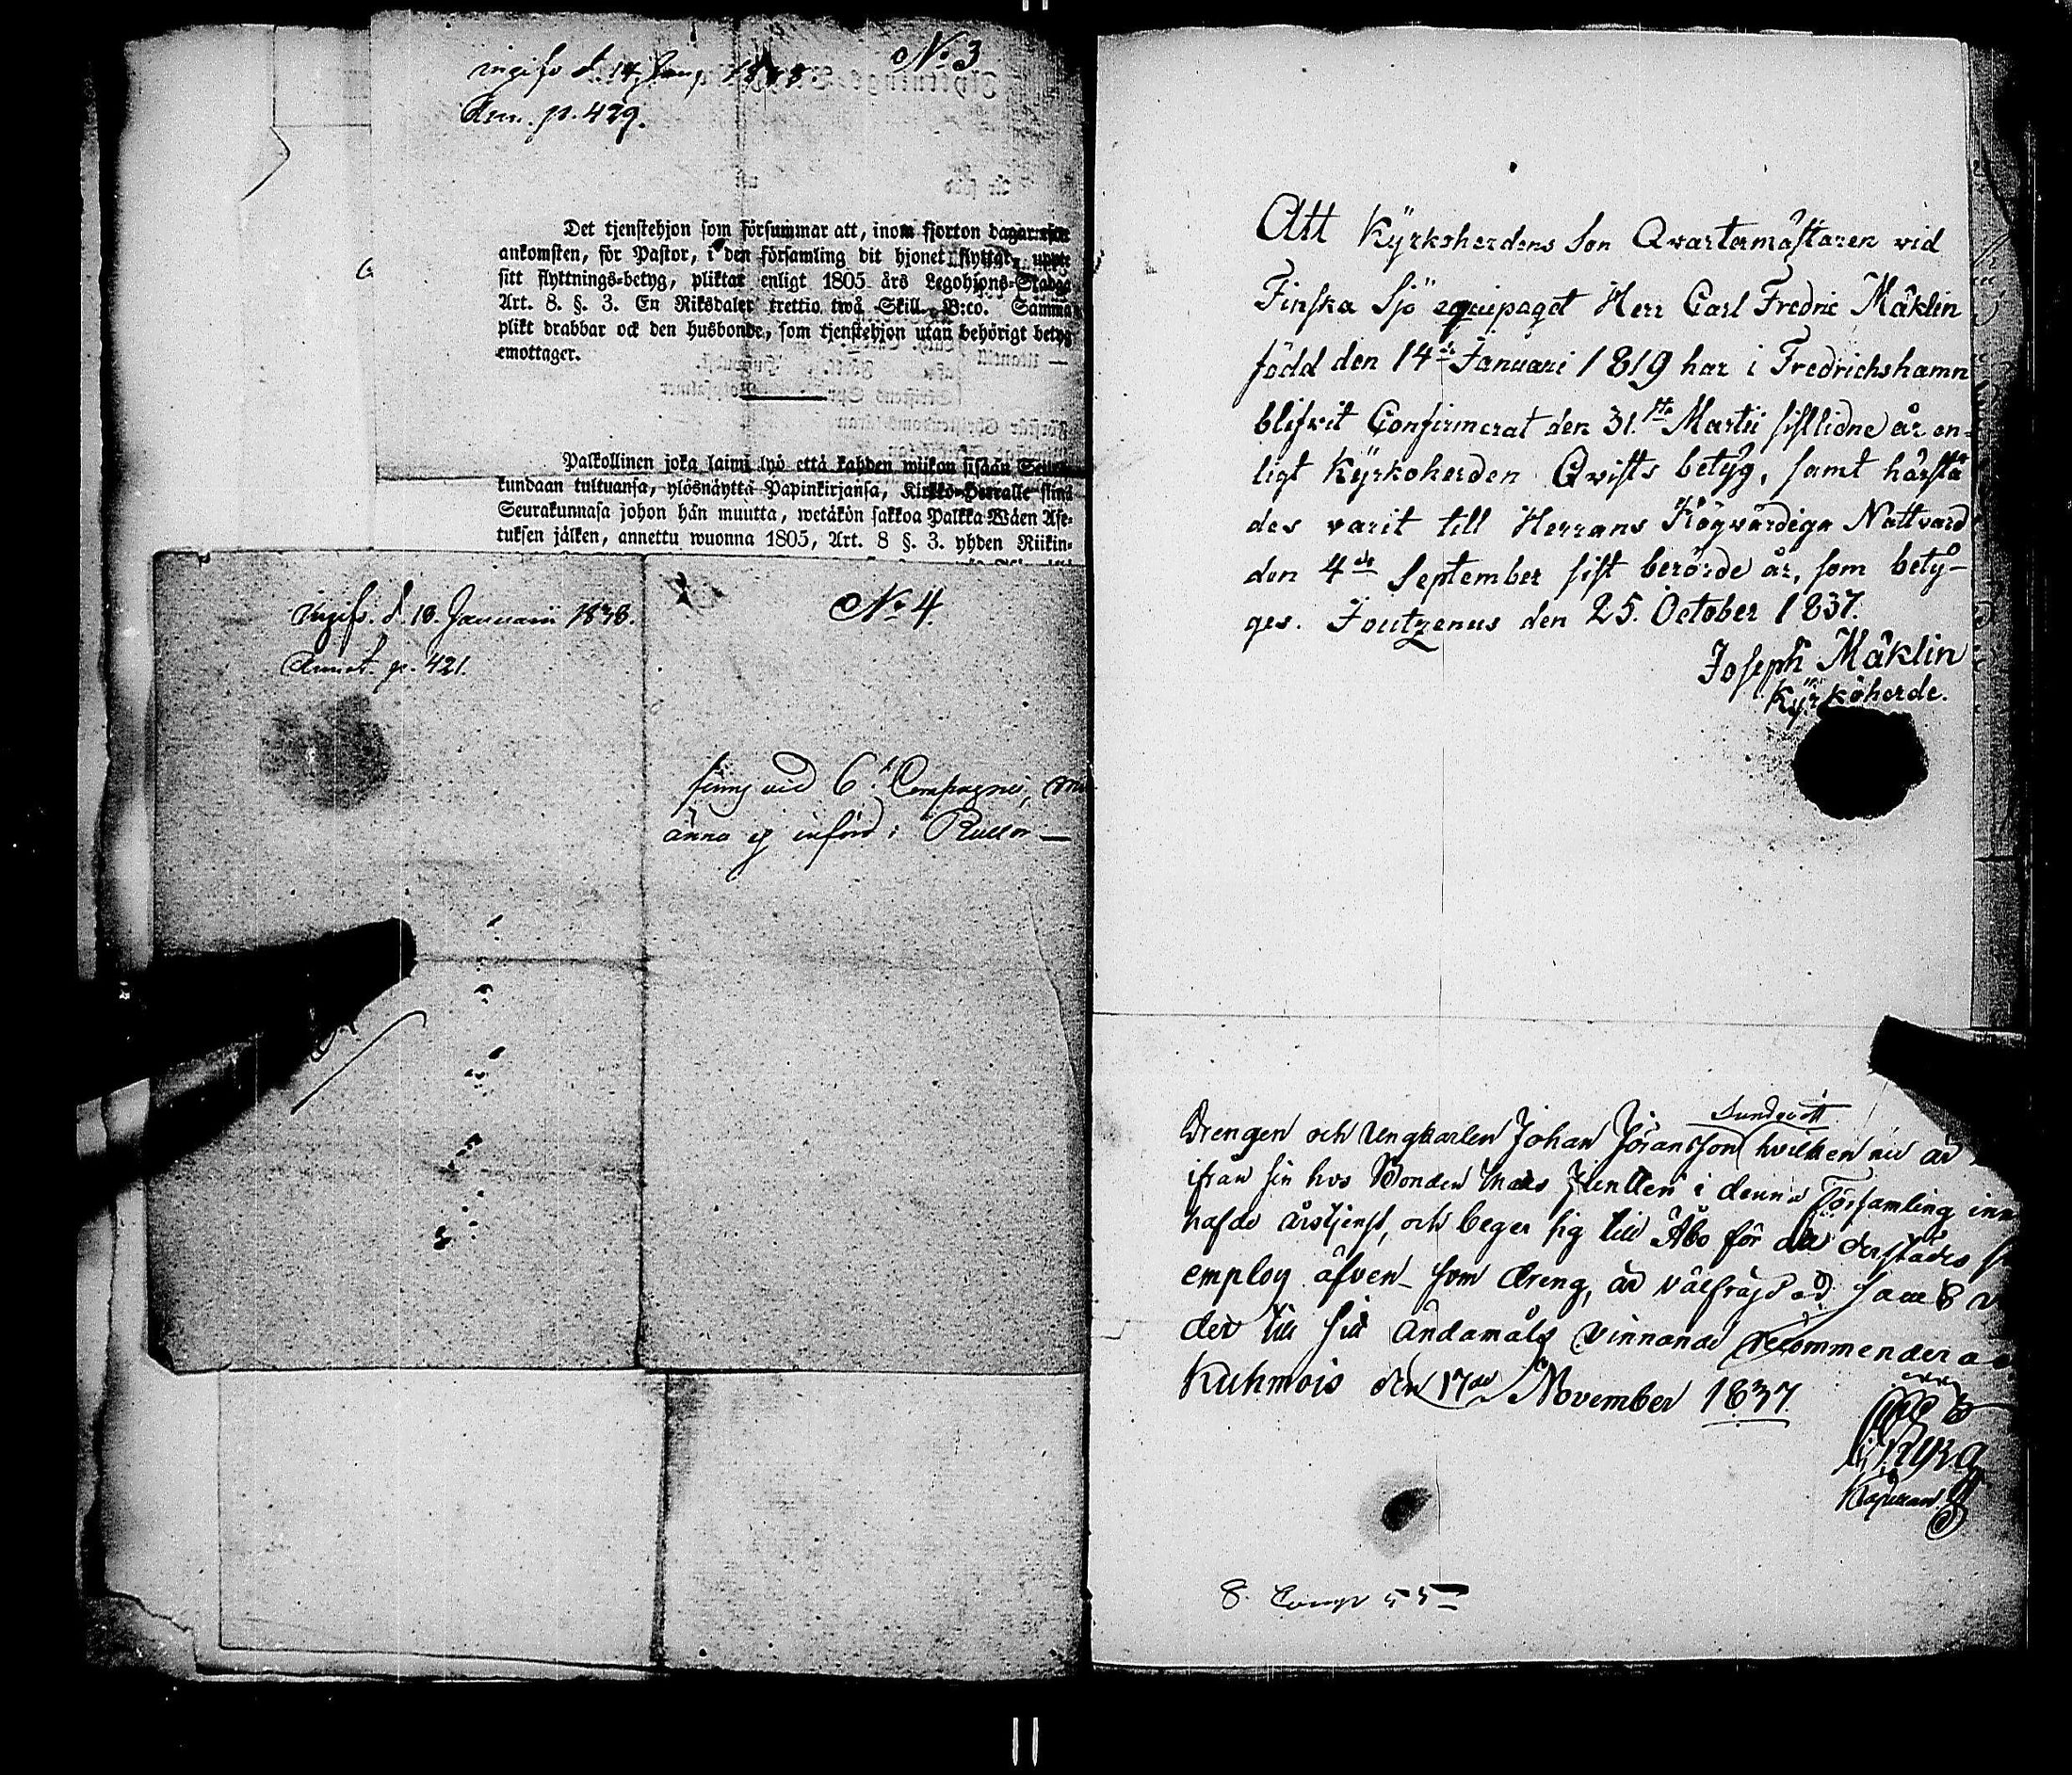 No 3
ingifv. d. 14 Janu. 1838.
Ann. p. 429.
Det tjenstehjon som försummar att, inom fjorton dagar efter
ankomsten, för Pastor, i den församling dit hjonet flyttat, uppte
sitt flyttnings-betyg, pliktar enligt 1805 års Legohjons-Stadga
Art. 8. §. 3. En Riksdaler trettio twå Skill. B:co. Samma
plikt drabbar ock den husbonde, som tjenstehjon utan behörigt betyg
emottager.
Palkollinen joka laimi lyö että kahden wiikon sisään Seura-
kundaan tultuansa, ylösnäyttä Papinkirjansa, Kirkko-Herralle siinä
Seurakunnasa johon hän muutta, wetäkön sakkoa Palkka-Wäen Ase-
tuksen jälken, annettu wuonna 1805, Art. 8 §. 3. yhden Riikin-
No 4.
Ingifv. d. 10. Januarii 1838.
Annot. p. 421.
finns vid 6te Compagniet, men
änna ej införd i Rullan —
Att Kyrkoherdens Son Qvartermästaren vid
Finska Sjö equipaget Herr Carl Fredric Mäklin
född den 14de Januari 1819 har i Fredrichshamn
blifvit Confirmerat den 31.sta Martii sistlidne år en-
ligt Kyrkoherden Qvists betyg, samt härstä
des varit till Herrans Högvärdiga Nattvard
den 4de September sist berörde år, som bety-
ges. Joutzenus den 25. October 1837.
Joseph Mäklin
Kyrkoherde.
Sundqvist
Drengen och Ungkarlen Johan Jöransson hvilken nu är
ifrån sin hos Bonden Mats Juntten i denna Församling inne
hafde årstjenst, och beger sig till Åbo för att derstädes
employ äfven som dreng, är välfräjdad samt
der till sit ändamåls vinnande recommenderas
Kuhmois den 17de November 1837
Kapellan.
8. Comp 55